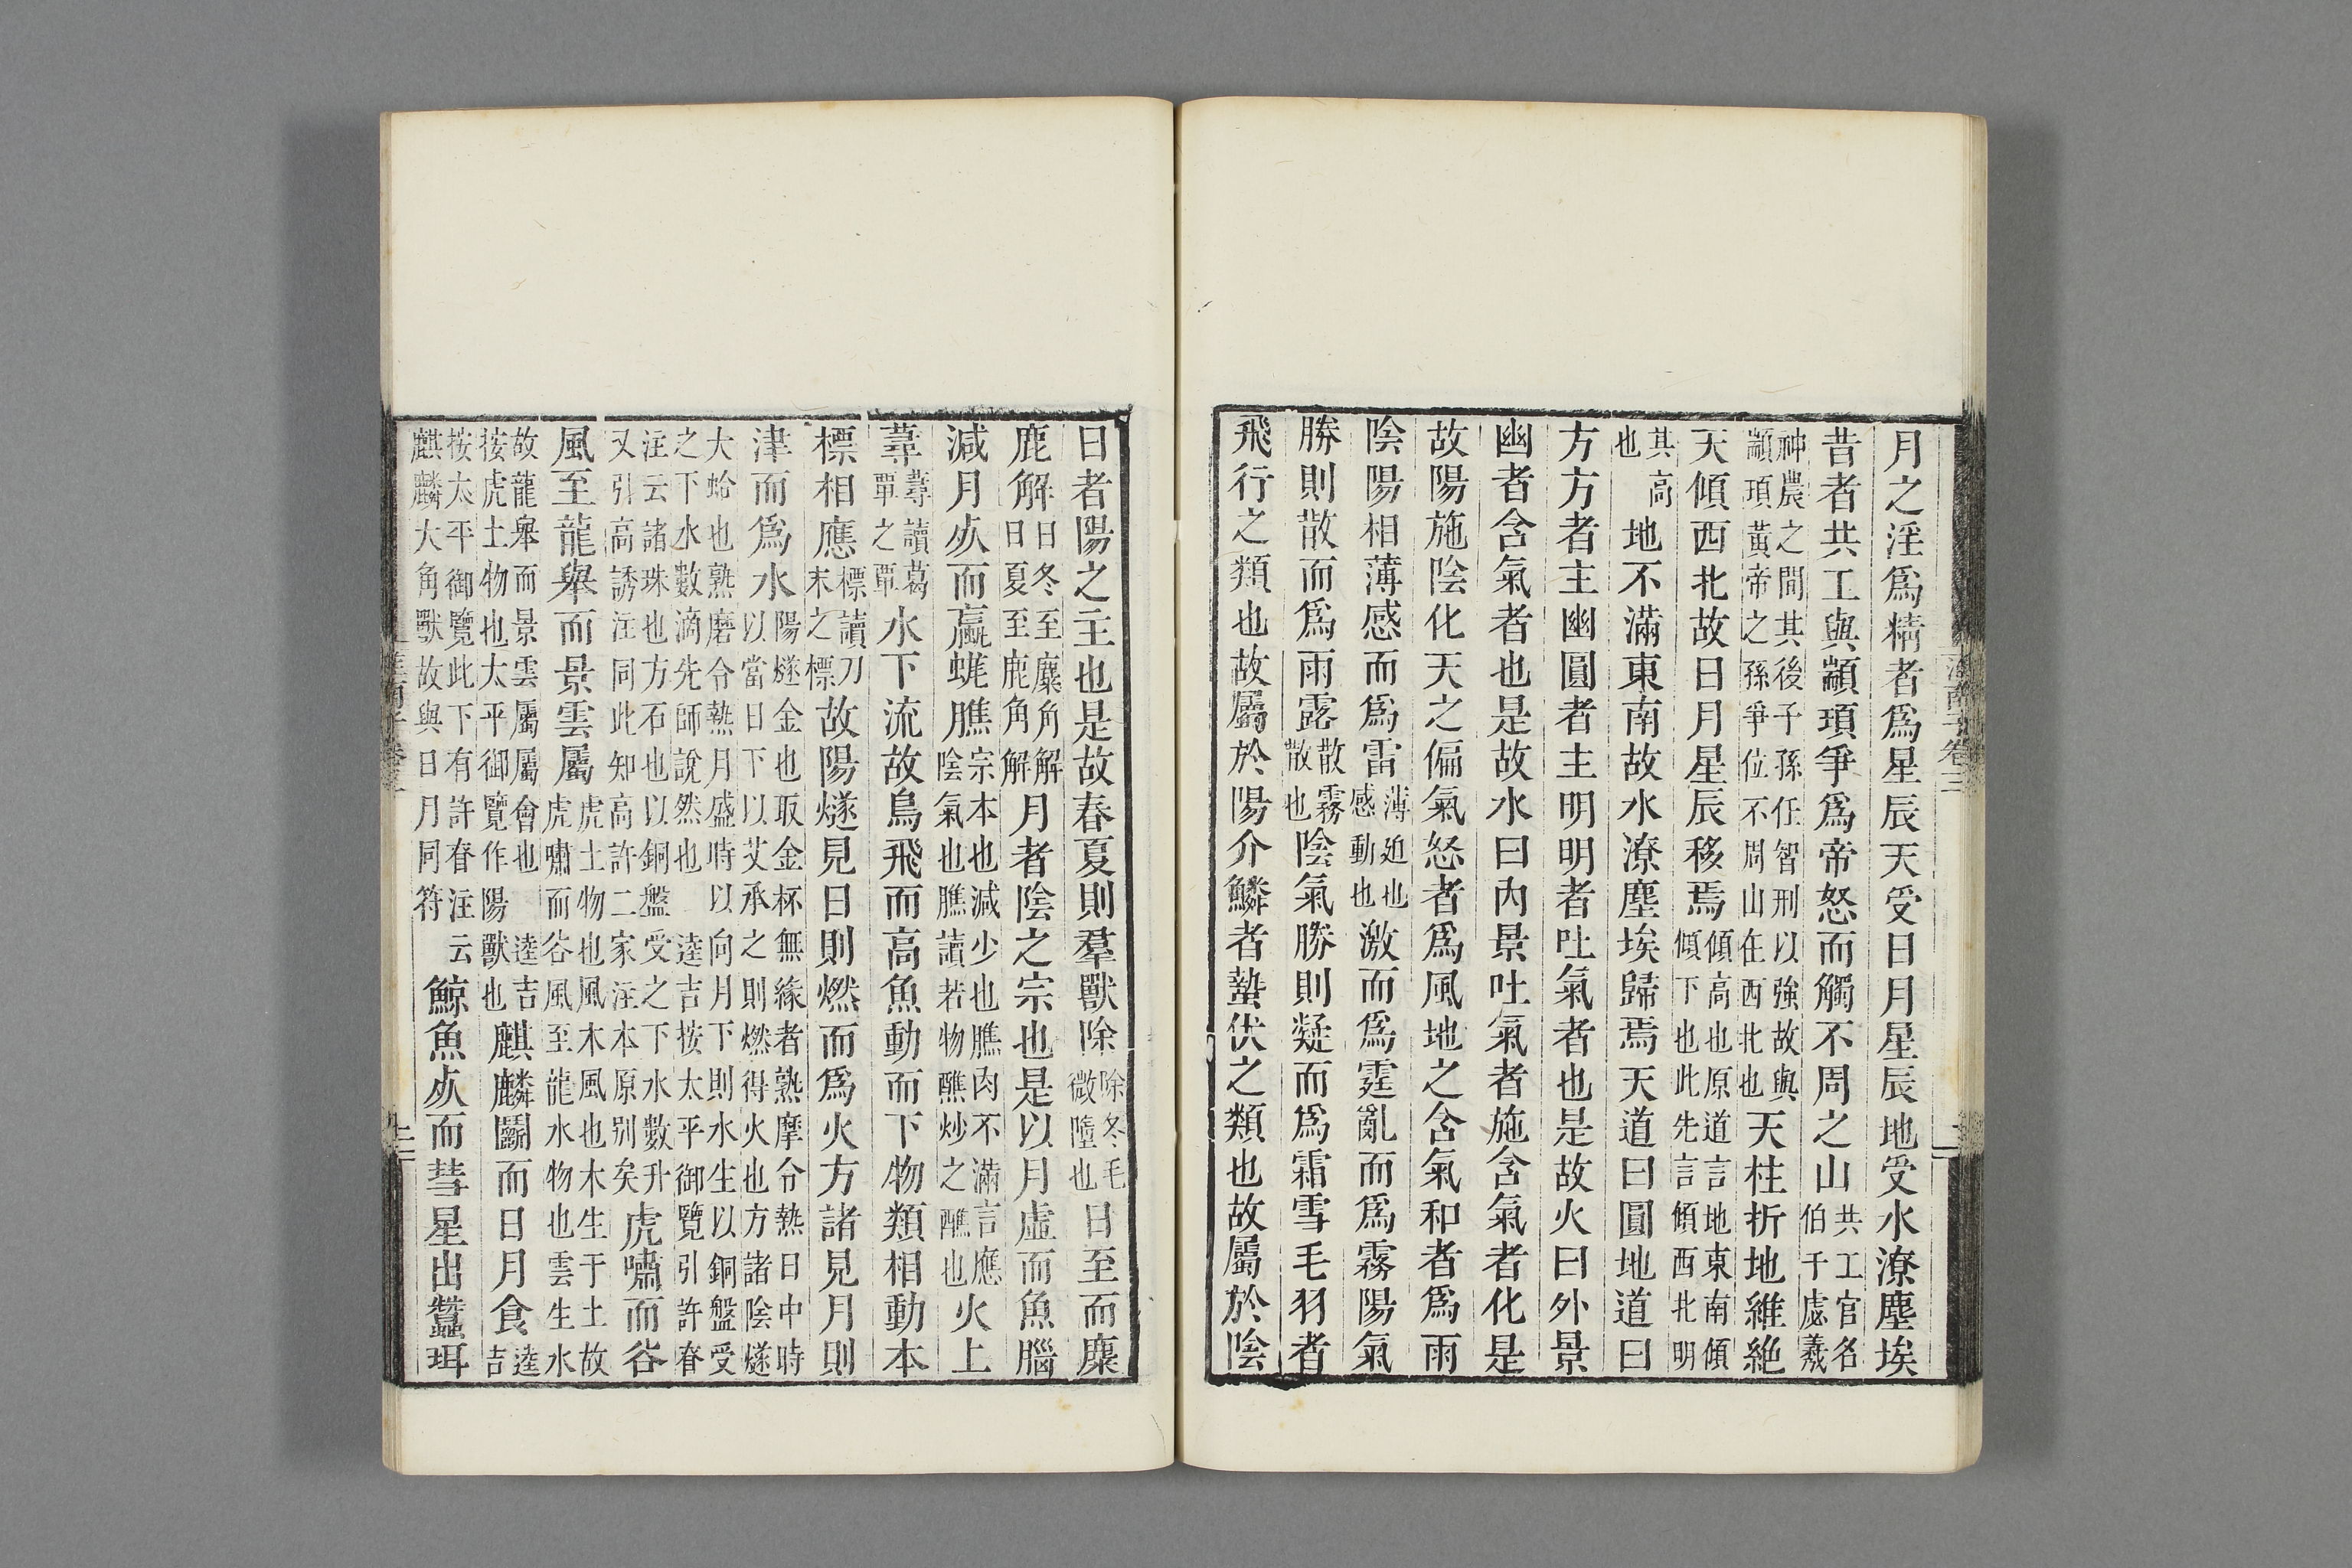 月之淫爲精者爲星辰天受日月星辰地受水潦塵埃
昔者共工與顓頊爭爲帝怒而觸不周之山共工官名伯于虙羲
神農之閒其後子孫任智刑以強故與顓頊黃帝之孫爭位不周山在西北也天柱折地維絶
天傾西北故日月星辰移焉傾高也原道言地東南傾傾下也此先言傾西北明
其高也地不滿東南故水潦塵埃歸焉天道曰圓地道曰
方方者主幽圓者主明明者吐氣者也是故火曰外景
幽者含氣者也是故水曰內景吐氣者施含氣者化是
故陽施陰化天之偏氣怒者爲風地之含氣和者爲雨
陰陽相薄感而爲雷薄迫也感動也激而爲霆亂而爲霧陽氣
勝則散而爲雨露散霧散也陰氣勝則凝而爲霜雪毛羽者
飛行之類也故屬於陽介鱗者蟄伏之類也故屬於陰
日者陽之主也是故春夏則羣獸除除冬毛微墮也日至而麋
鹿解日冬至麋角解日夏至鹿角解月者陰之宗也是以月虛而魚腦
減月死而蠃蛖膲宗本也減少也膲肉不滿言應陰氣也膲讀若物醮炒之醮也火上
蕁蕁讀葛覃之覃水下流故鳥飛而高魚動而下物類相動本
標相應標讀刀末之標故陽燧見日則燃而爲火方諸見月則
津而爲水陽燧金也取金杯無緣者熟摩令熱日中時以當日下以艾承之則燃得火也方諸陰燧
大蛤也熟磨令熱月盛時以向月下則水生以銅盤受之下水數滴先師說然也 逵吉按太平御覽引許眘
注云諸珠也方石也以銅盤受之下水數升又引高誘注同此知高許二家注本原別矣虎嘯而谷
風至龍舉而景雲屬虎土物也風木風也木生于土故虎嘯而谷風至龍水物也雲生水
故龍舉而景雲屬屬會也 逵吉按虎土物也太平御覽作陽獸也麒麟鬭而日月食逵吉
按太平御覽此下有許眘注云麒麟大角獸故與日月同符鯨魚死而彗星出蠶珥